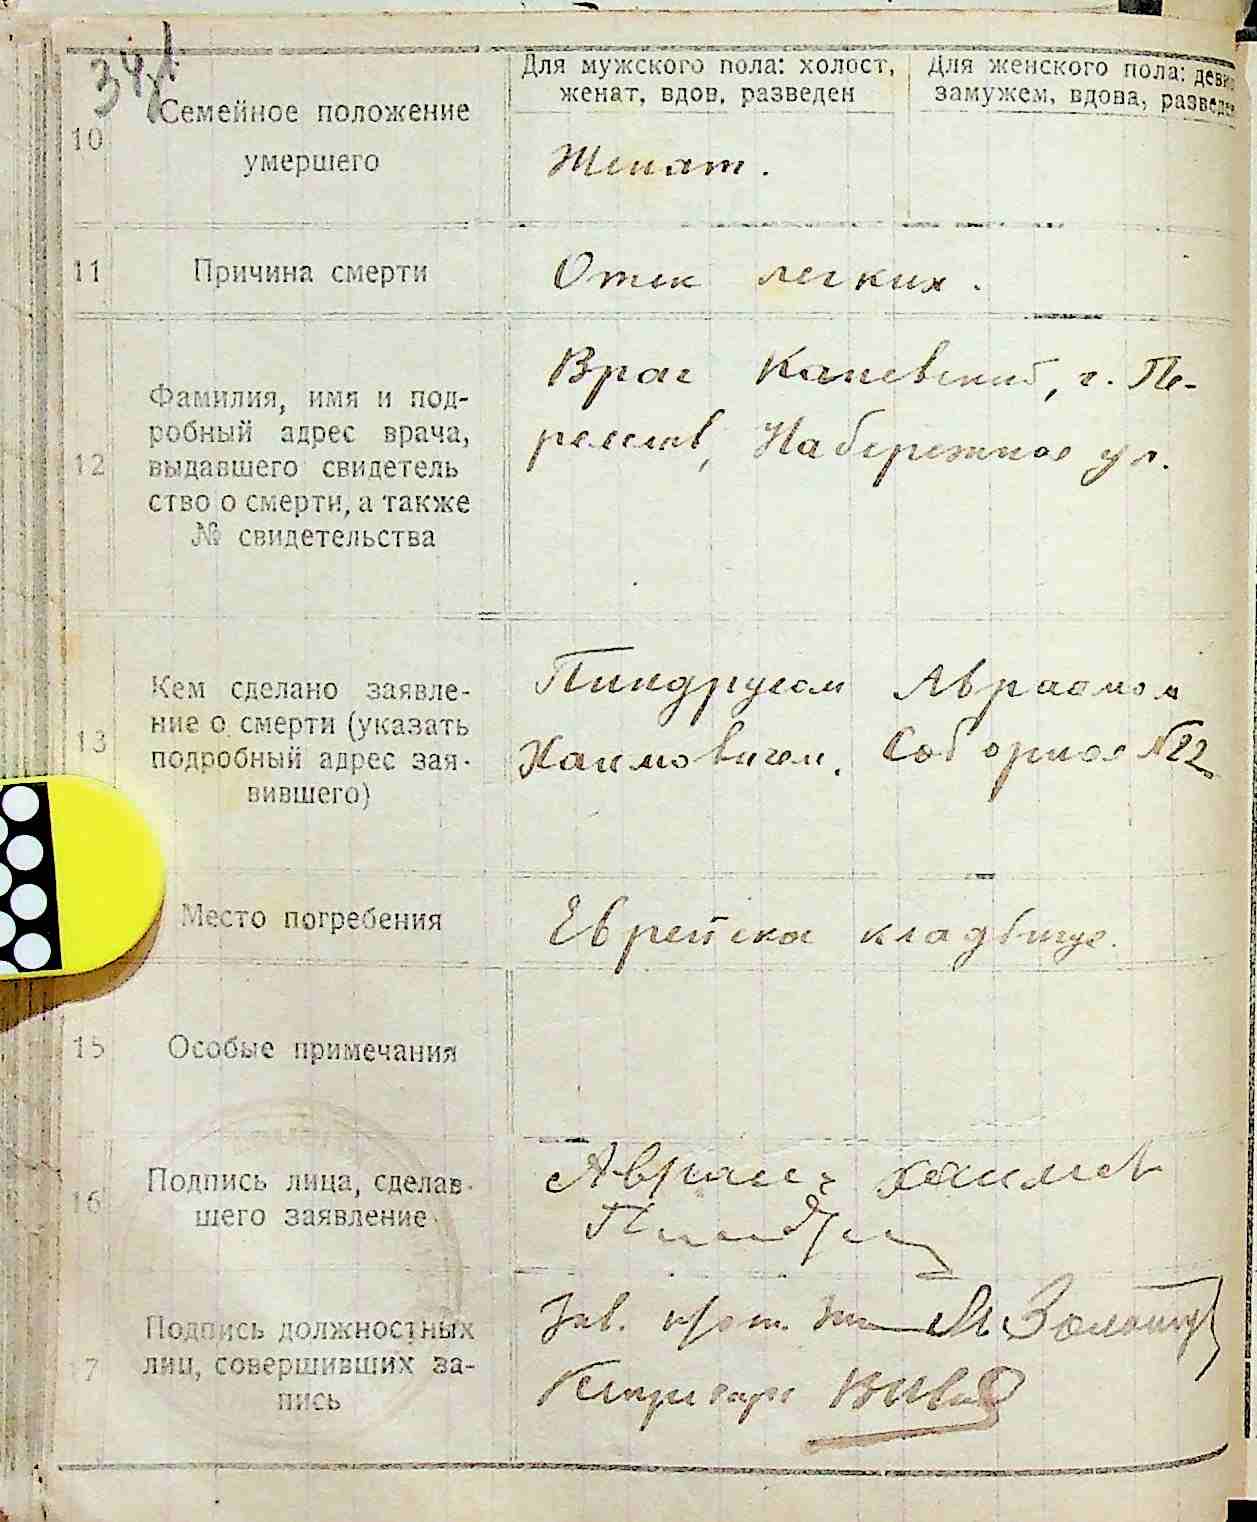 Для мужского пола: холост,
женат, вдов, разведен
Для женского пола:
замужем, вдова,
10
Семейное положение
умершего
Женат.
11
Причина смерти
Отек легких.
12
Фамилия, имя и под-
робный адрес врача,
выдавшего свидетель
ство о смерти, а также
№ свидетельства
Врач Каневский, г. Пе-
реяслав, Набережная ул.
13
Кем сделано заявле-
ние о смерти (указать
подробный адрес зая-
вившего)
Пиндрусом Авраамом
Хаимовичем. Соборная №22
Место погребения
Еврейска кладбище.
15
Особые примечания
16
Подпись лица, сделав-
шего заявление
Авраам
17
Подпись должностных
лиц, совершивших за-
пись
Зав.
Секретарь